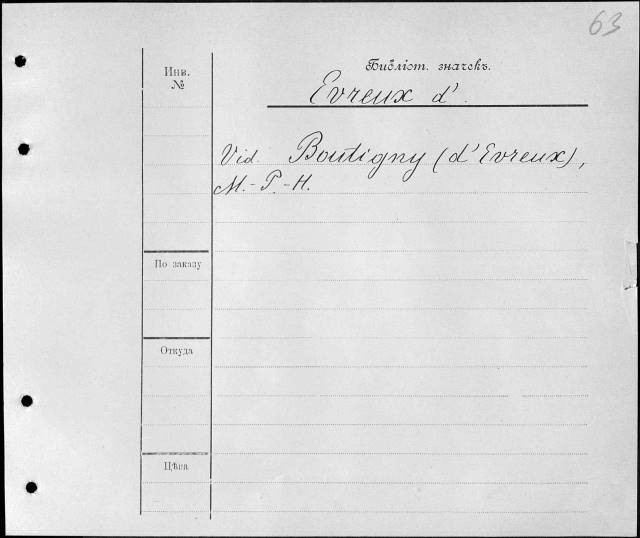 63
Инв.
№
Библіот. значекъ.
Evreux d'.
Vid. Boutigny (d'Evreux),
M.-P.-H.
По заказу
Откуда
Цѣна